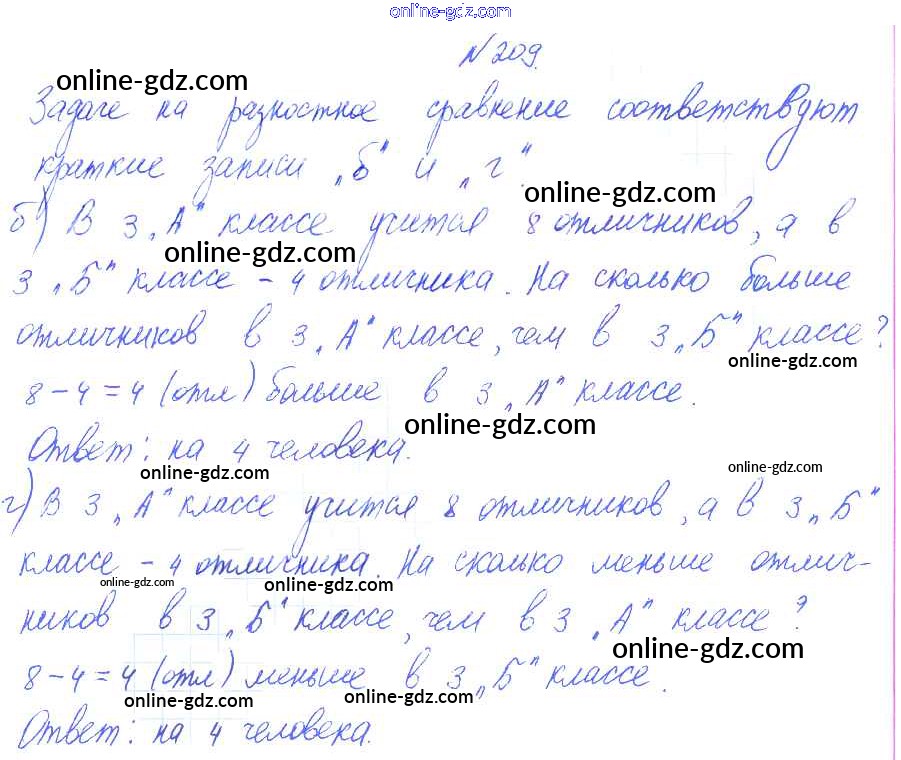 online-gdz.com
№ 209.
online-gdz.com
Задаче на разностное сравнение соответствуют
краткие записи „б" и „г"
online-gdz.com
б) В 3 „А" классе учится 8 отличников, а в
online-gdz.com
3 „Б" классе - 4 отличника. На сколько больше
отличников в 3 „А" классе, чем в 3 „Б" классе?
online-gdz.com
8 - 4 = 4 (отл) больше в 3 „А" классе.
online-gdz.com
Ответ: на 4 человека.
online-gdz.com
online-gdz.com
г) В 3 „А" классе учится 8 отличников, а в 3 „Б"
классе - 4 отличника. На сколько меньше отлич-
online-gdz.com
online-gdz.com
ников в 3 „Б" классе, чем в 3 „А" классе?
online-gdz.com
8 - 4 = 4 (отл) меньше в 3 „Б" классе.
online-gdz.com
online-gdz.com
Ответ: на 4 человека.